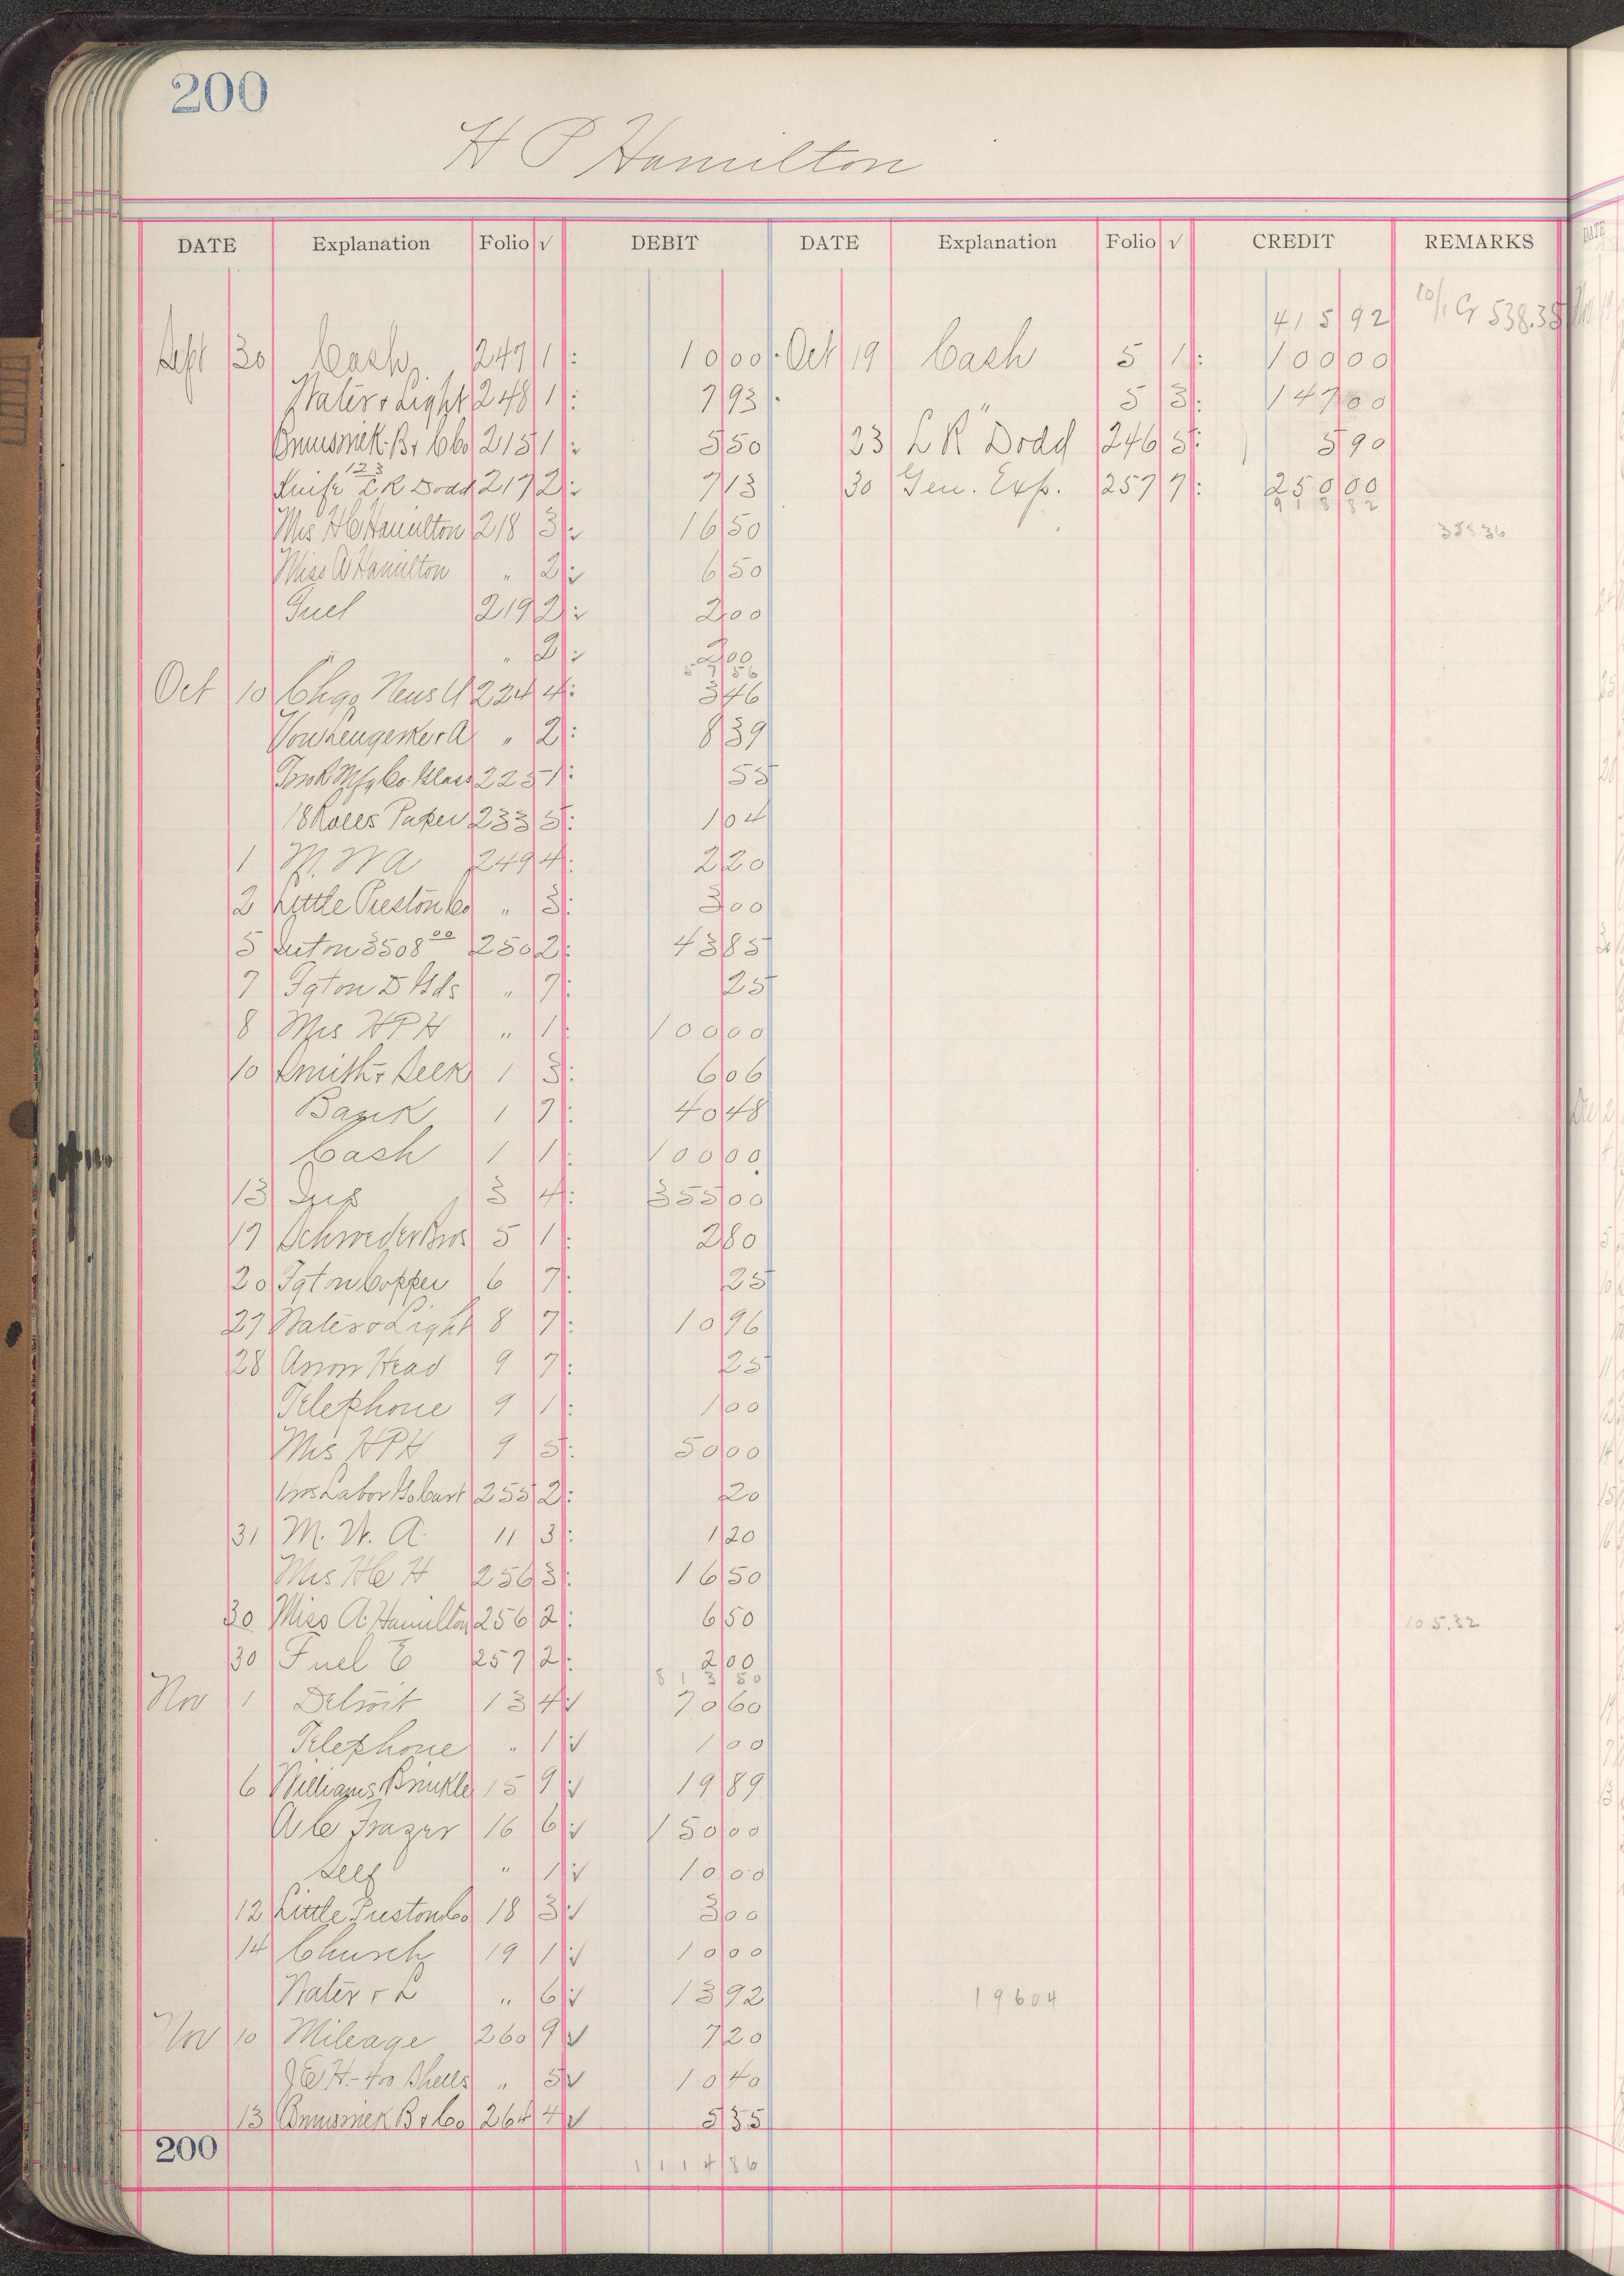 200
H P Hamilton
DATE Explanation Folio √ DEBIT DATE Explanation Folio √ CREDIT REMARKS
415 92 10/1 Cr 538.35
Sept 30 Cash 247 1 10 00 Oct 19 Cash 5 1 100 00
Water & Light 248 1 7 93 " 5 3 147 00
Brunswick-B & Co 215 1 5 50 23 L R Dodd 246 5 5 90
Knife 123 L R Dodd 217 2 7 13 30 Gen. Exp. 257 7 250 00
918 82
Mrs H C Hamilton 218 3 16 50 38836
Miss A Hamilton " 2 6 50
Fuel 219 2 2 00
" " 2 2 00
57 56
Oct 10 Chgo News 224 4 3 46
Von Lengerke & A " 2 8 39
Mfg Co. Glass 225 1 55
18 Rolls Paper 233 5 1 04
1 M. W A 249 4 2 20
2 Little Preston Co " 3 3 00
5 Int on 3508 00 250 2 43 85
7 Fgt on D Gds " 7 25
8 Mrs H P H " 1 100 00
10 Smith & Seek 1 3 6 06
Bank 1 7 40 48
Cash 1 1 100 00
13 Ins 3 4 355 00
17 Schroeder Bros 5 1 2 80
20 Fgt on Copper 6 7 25
27 Water & Light 8 7 10 96
28 Arrow Head 9 7 25
Telephone 9 1 1 00
Mrs H P H 9 5 50 00
Labor Go Cart 255 2 20
31 M. W. A. 11 3 1 20
Mrs H C H 256 3 16 50
30 Miss A. Hamilton 256 2 6 50 105.32
30 Fuel E 257 2 2 00
813 50
Nov 1 Detroit 13 4 √ 70 60
Telephone " 1 √ 1 00
6 Williams Brinkle 15 9 √ 19 89
A C Frazer 16 6 √ 150 00
Self " 1 √ 10 00
12 Little Preston Co 18 3 √ 3 00
14 Church 19 1 √ 10 00
Water & L " 6 √ 13 92 19604
Nov 10 Mileage 260 9 √ 7 20
J C H.- 400 Shells " 5 √ 10 40
13 Brunswick B & Co 264 4 √ 5 35
200
1114 86